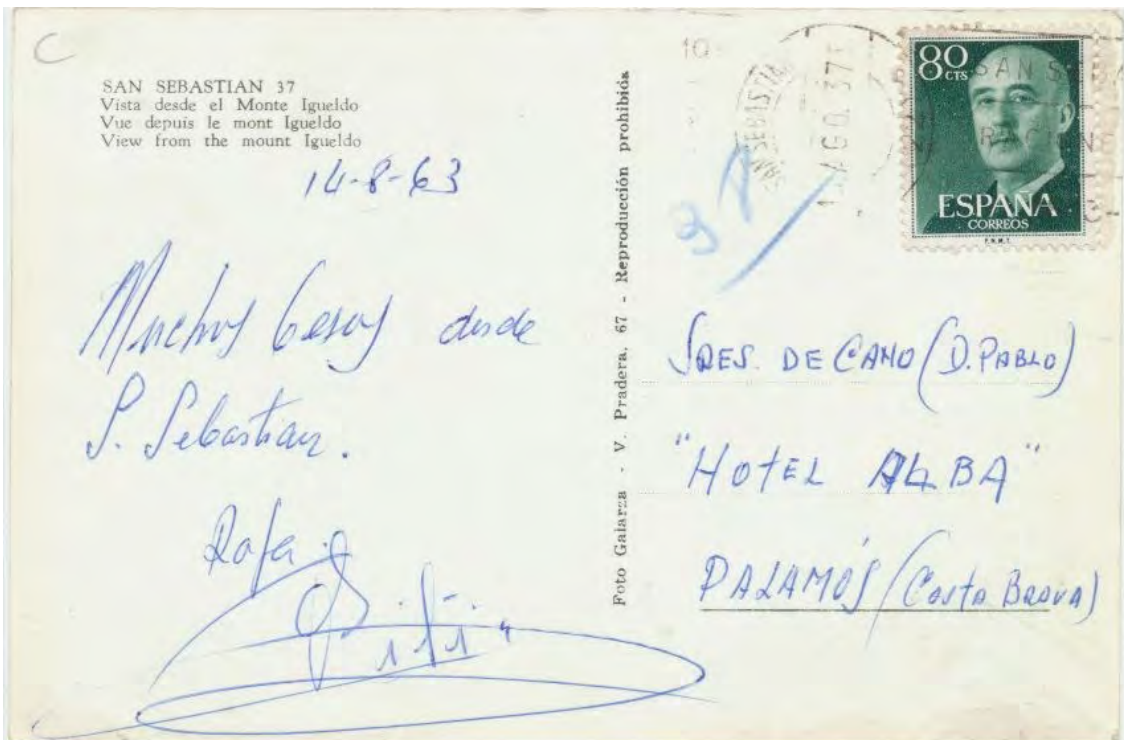 C
SAN SEBASTIAN 37
Vista desde el Monte Igueldo
Vue depuis le mont Igueldo
View from the mount Igueldo
14-8-63
Muchos besos desde
S. Sebastian.
Rafa
Foto Galarza - V. Pradera, 67 - Reproducción prohibida
10
SAN SEBASTIA
AGO.
37
80
CTS
ESPAÑA
CORREOS
F.N.M.T.
SRES. DE CANO (D. PABLO)
"HOTEL ALBA"
PALAMÓS (COSTA BRAVA)